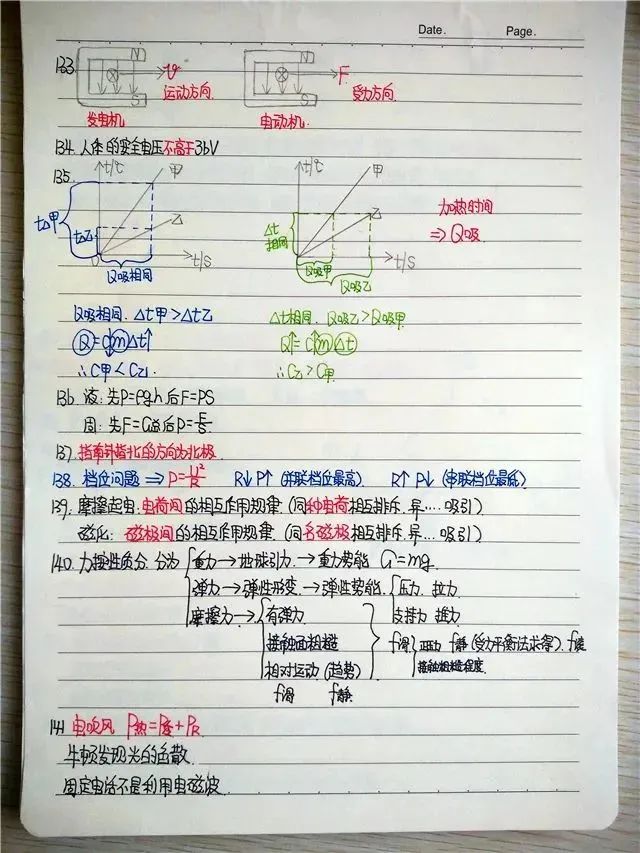 Date. Page.
133.
N
S
v
运动方向.
发电机
N
S
F
受力方向.
电动机.
134. 人体的安全电压不高于36V
135.
t/℃
甲
乙
t△甲
t△乙
0
t/S
Q吸相同
t/℃
甲
乙
△t
相同
t/S
Q吸甲
Q吸乙
加热时间
⇒ Q吸
Q吸相同. △t甲>△t乙
Q=c↓m△t↑
∴C甲<C乙
△t相同. Q吸乙>Q吸甲.
Q↑=c↑m△t
∴C乙>C甲
136. 液: 先P=ρgh 后F=PS
固: 先F=G总后P=F/S
137. 指南针指北的方向为北极
138. 档位问题 ⇒ P=U²/R R↓P↑ (并联档位最高). R↑ P↓ (串联档位最低)
139. 摩擦起电: 电荷间的相互作用规律. (同种电荷相互排斥. 异....吸引)
磁化: 磁极间的相互作用规律. (同名磁极相互排斥. 异....吸引)
140. 力按性质分. 分为
重力→地球引力→重力势能 G=mg.
弹力→弹性形变→弹性势能.
压力. 拉力.
支持力 推力
摩擦力→
有弹力
接触面粗糙
相对运动 (趋势)
f滑 f静
f滑
正压力
接触粗糙程度.
f静 (受力平衡法求得).
141 电吹风 P热=P总+PR
牛顿发现光的色散
固定电话不是利用电磁波